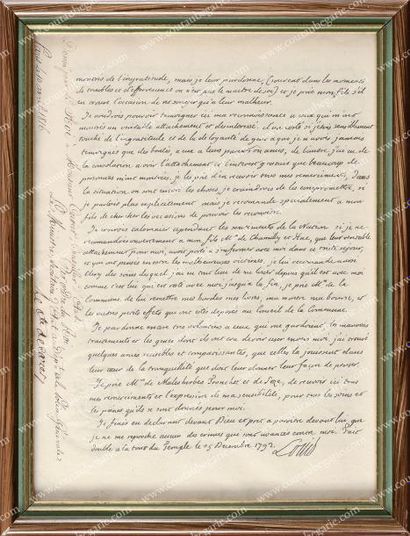 montré de l'ingratitude, mais je leur pardonne, (souvent dans les momens
de troubles et d'effervescence on n'est pas le maitre de soi) et je prie mon fils s'il
en trouve l'occasion de ne songer qu'a leur malheur.
Je voudrois pouvoir temoigner ici ma reconnoissance a ceux qui m'ont
montré un veritable attachement et desinteressé. d'un coté si j'etois sensiblement
touché de l'ingratitude et de la deloyauté de gens a qui je n'avois jamais
temoigné que des bontés, a eux a leurs parents ou amis, de l'autre, j'ai eu de
la consolation a voir l'attachement et l'interet gratuit que beaucoup de
personnes m'ont montrées, je les prie d'en recevoir tous mes remerciments, dans
la situation ou sont encore les choses, je craindrois de les compromettre, si
je parlois plus explicitement mais je recommande specialement a mon
fils de chercher les occasions de pouvoir les reconnoitre.
Je croirois calomnier cependant les sentiments de la Nation si je ne
recommandois ouvertement a mon fils Mrs de Chamilly et Hue, que leur veritable
attachement pour moi, avoit porté a s'enfermer avec moi dans ce triste sejour,
et qui ont pensés en etre les malheureuses victimes, je lui recommande aussi
Clery des soins duquel j'ai eu tout lieu de me louer depuis qu'il est avec moi
comme c'est lui qui est resté avec moi jusqu'a la fin, je prie Mrs de la
Commune de lui remettre mes hardes mes livres, ma montre ma bourse, et
les autres petits effets qui ont été deposés au Conseil de la Commune.
Je pardonne encore tres volontiers a ceux qui me gardoient, les mauvais
traitements et les gesnes dont ils ont cru devoir user envers moi, j'ai trouvé
quelques ames sensibles et compatissantes, que celles la jouissent dans
leur cœur de la tranquilité que doit leur donner leur façon de penser.
Je prie Mrs de Malesherbes Tronchet et de Seze, de recevoir ici tous
mes remerciments et l'expression de ma sensibilité, pour tous les soins et
les peines qu'ils se sont donnés pour moi.
Je finis en declarant devant Dieu et pret a paroitre devant lui que
je ne me reproche aucun des crimes qui sont avancés contre moi. Fait
double a la tour du Temple le 25 Decembre 1792. Louis
www.coutaubegarie.com